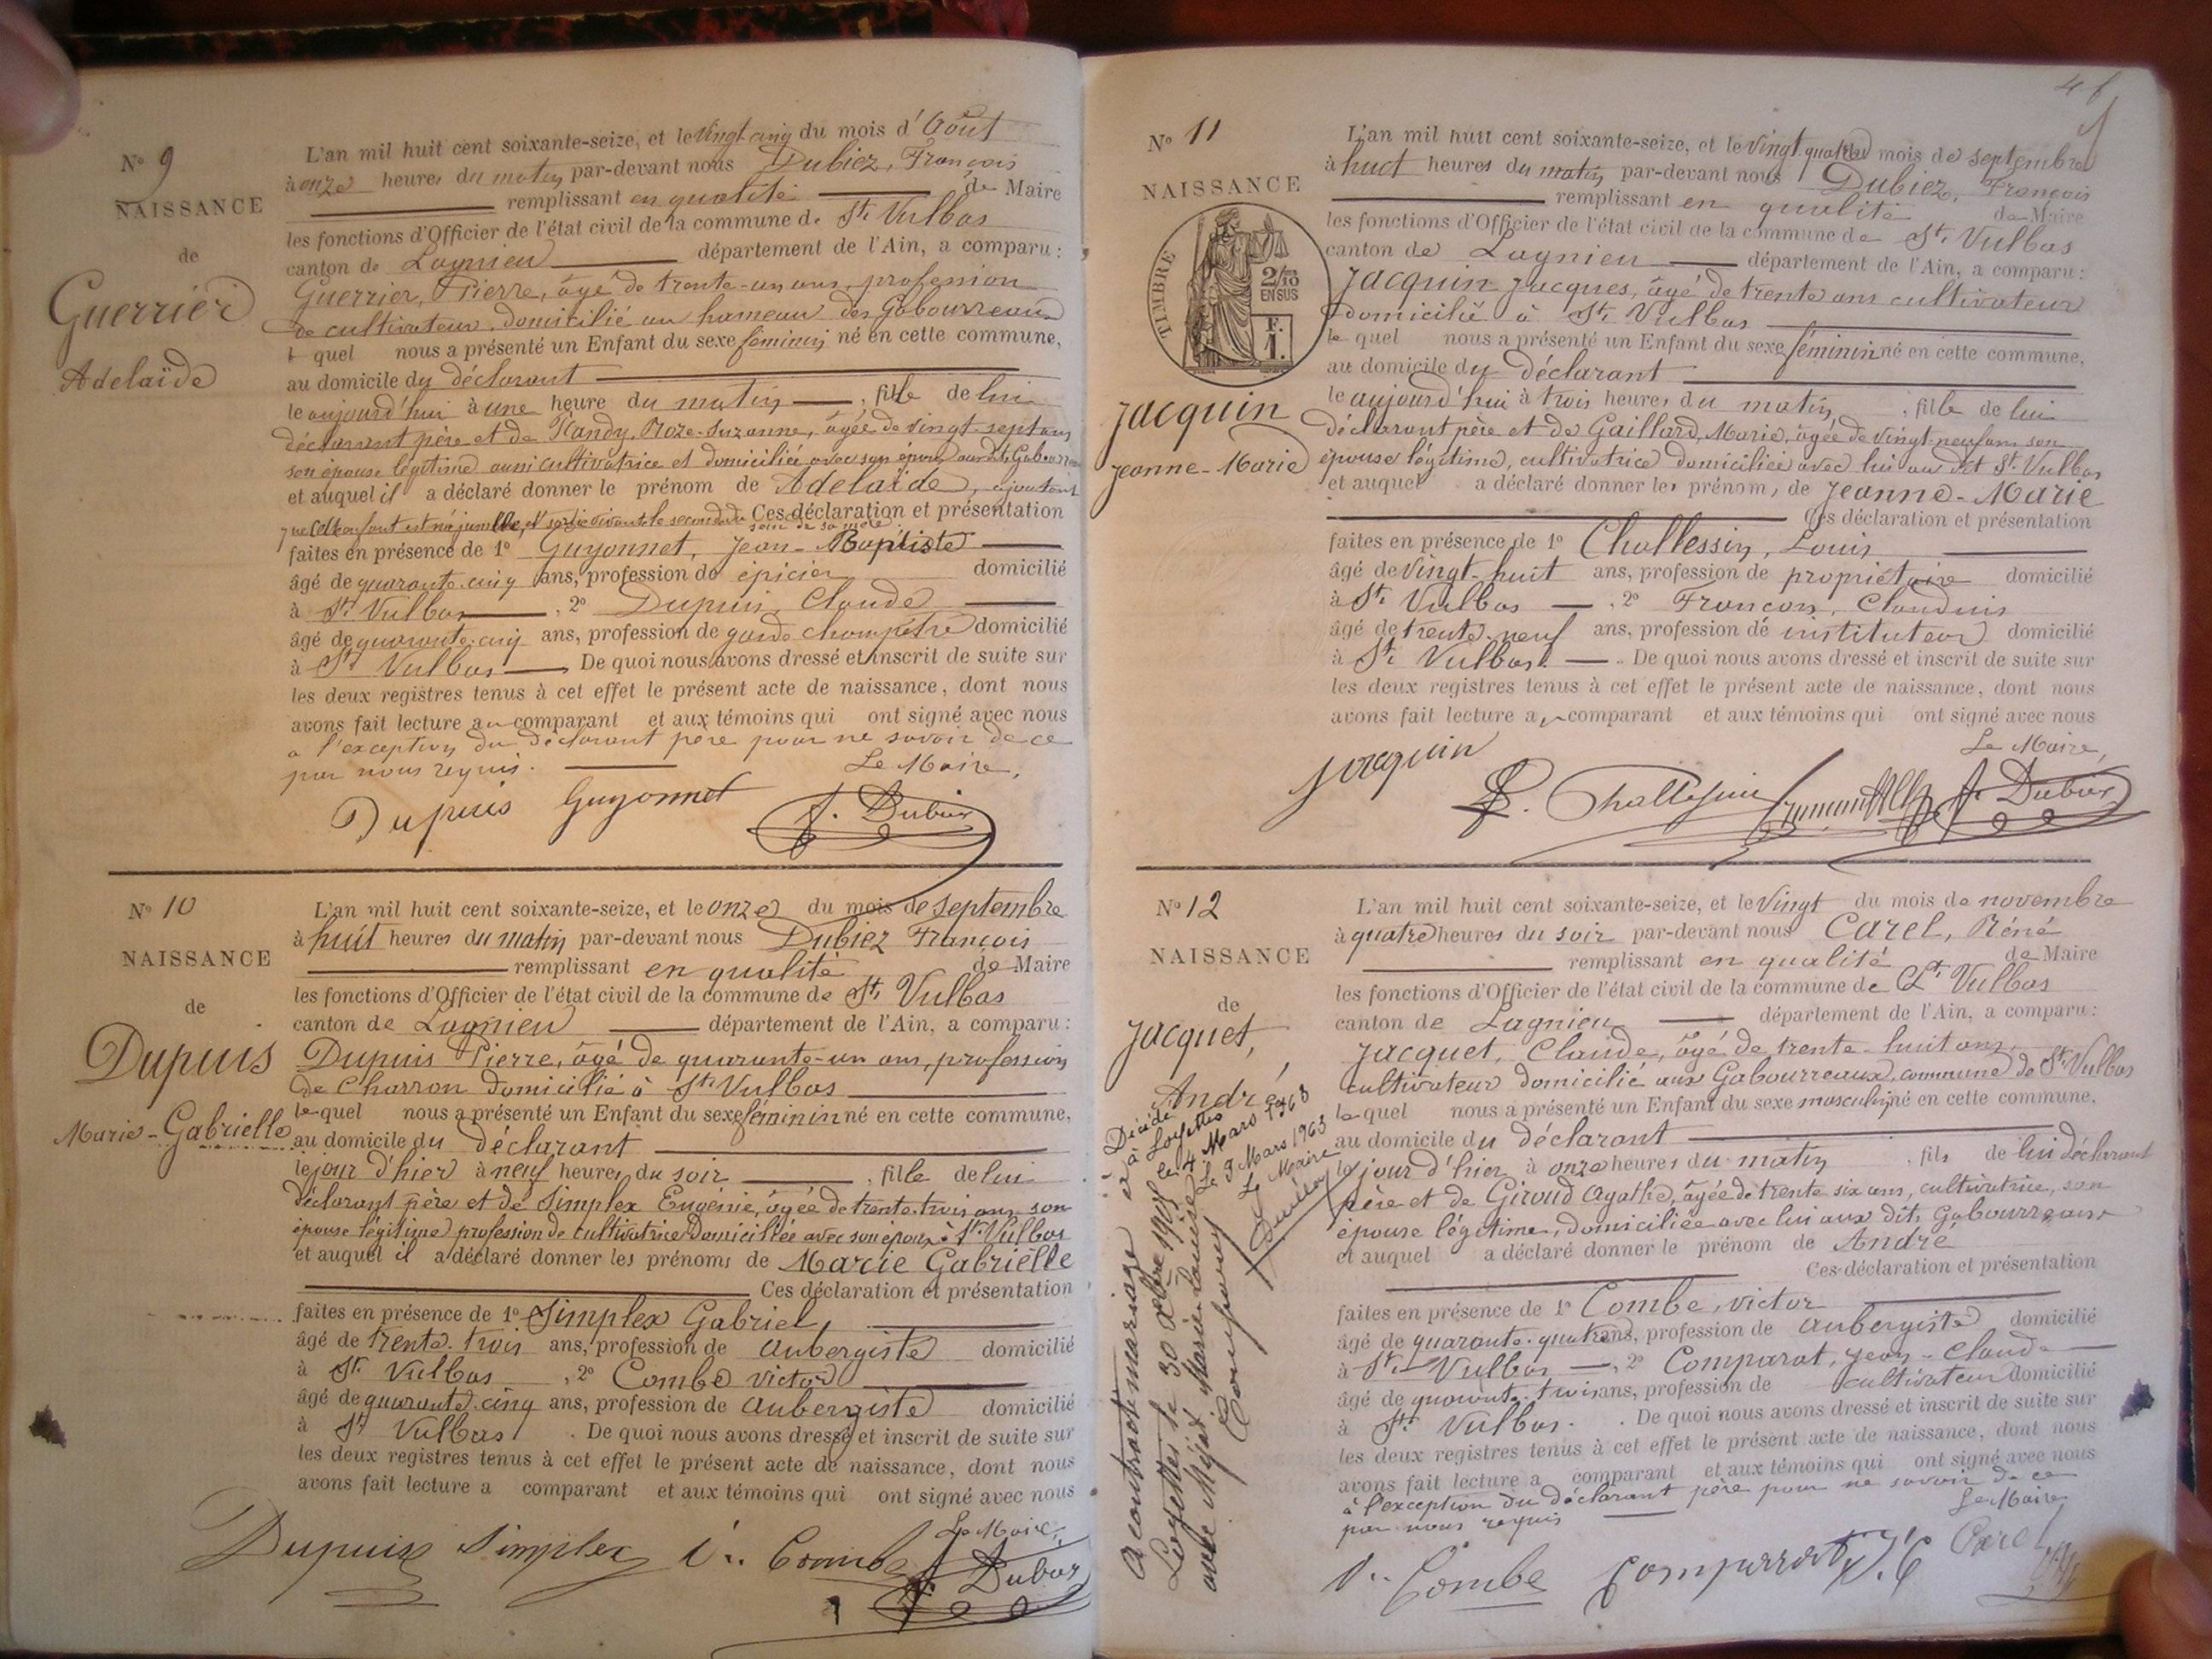 N° 9
NAISSANCE
de
Guerrier
Adelaïde
L'an mil huit cent soixante-seize, et le vingt cinq du mois d'Août
à onze heures du matin par-devant nous Dubiez, François
remplissant en qualité de Maire
les fonctions d'Officier de l'état civil de la commune de St. Vulbas
canton de Lagnieu département de l'Ain, a comparu :
Guerrier, Pierre, âgé de trente-un ans, profession
de cultivateur, domicilié au hameau des Gabourreaux
lequel nous a présenté un Enfant du sexe féminin né en cette commune,
au domicile du déclarant
le aujourd'hui à une heure du matin, fille de lui
déclarant père et de Roze-Suzanne, âgée de vingt-sept ans
son épouse légitime aussi cultivatrice et domiciliée avec son époux aux dits
et auquel il a déclaré donner le prénom de Adelaïde, ajoutant
que cet enfant est né jumelle, et sortie vivante la seconde du sein de sa mère. Ces déclaration et présentation
faites en présence de 1° Guyonnet, Jean-Baptiste
âgé de quarante-cinq ans, profession de épicier domicilié
à St. Vulbas, 2° Dupuis, Claude
âgé de quarante-cinq ans, profession de garde champêtre domicilié
à St. Vulbas De quoi nous avons dressé et inscrit de suite sur
les deux registres tenus à cet effet le présent acte de naissance, dont nous
avons fait lecture au comparant et aux témoins qui ont signé avec nous
à l'exception du déclarant père pour ne savoir de ce
par nous requis.
Le Maire,
Dupuis Guyonnet f. Dubiez
N° 10
NAISSANCE
de
Dupuis
Marie-Gabrielle
L'an mil huit cent soixante-seize, et le onze du mois de septembre
à huit heures du matin par-devant nous Dubiez François
remplissant en qualité de Maire
les fonctions d'Officier de l'état civil de la commune de St. Vulbas
canton de Lagnieu département de l'Ain, a comparu :
Dupuis Pierre, âgé de quarante-un ans, profession
de Charron domicilié à St. Vulbas
lequel nous a présenté un Enfant du sexe féminin né en cette commune,
au domicile du déclarant
le jour d'hier à neuf heures du soir, fille de lui
déclarant père et de Simplex Eugénie, âgée de trente-trois ans son
épouse légitime profession de cultivatrice domiciliée avec son époux à St. Vulbas
et auquel il a déclaré donner les prénoms de Marie Gabrielle
Ces déclaration et présentation
faites en présence de 1° Simplex Gabriel,
âgé de trente-trois ans, profession de aubergiste domicilié
à St. Vulbas, 2° Combe victor
âgé de quarante-cinq ans, profession de aubergiste domicilié
à St. Vulbas. De quoi nous avons dressé et inscrit de suite sur
les deux registres tenus à cet effet le présent acte de naissance, dont nous
avons fait lecture a comparant et aux témoins qui ont signé avec nous
Le Maire,
Dupuis Simplex V. Combe f. Dubiez
N° 11
NAISSANCE
TIMBRE
2/10 EN SUS
F. 1.
Jacquin
Jeanne-Marie
L'an mil huit cent soixante-seize, et le vingt quatre du mois de septembre
à huit heures du matin par-devant nous Dubiez, François
remplissant en qualité de Maire
les fonctions d'Officier de l'état civil de la commune de St. Vulbas
canton de Lagnieu département de l'Ain, a comparu :
Jacquin Jacques, âgé de trente ans cultivateur
domicilié à St. Vulbas
lequel nous a présenté un Enfant du sexe féminin né en cette commune,
au domicile du déclarant
le aujourd'hui à trois heures du matin, fille de lui
déclarant père et de Gaillard, Marie, âgée de vingt-neuf ans son
épouse légitime, cultivatrice domiciliée avec lui au dit St. Vulbas
et auquel a déclaré donner les prénoms de Jeanne-Marie
Ces déclaration et présentation
faites en présence de 1° Challessin, Louis
âgé de vingt-huit ans, profession de propriétaire domicilié
à St. Vulbas, 2° Françon, Claudius
âgé de trente-neuf ans, profession de instituteur domicilié
à St. Vulbas. De quoi nous avons dressé et inscrit de suite sur
les deux registres tenus à cet effet le présent acte de naissance, dont nous
avons fait lecture au comparant et aux témoins qui ont signé avec nous
Le Maire,
Jacquin f. Dubiez
N° 12
NAISSANCE
de
Jacquet,
André
Décédé
à Loyettes
le 4 Mars 1963
Le Maire
A contracté mariage à
Loyettes le 30 1905
avec Marie Louise
L'an mil huit cent soixante-seize, et le vingt du mois de novembre
à quatre heures du soir par-devant nous Carel, Réné
remplissant en qualité de Maire
les fonctions d'Officier de l'état civil de la commune de St. Vulbas
canton de Lagnieu département de l'Ain, a comparu :
Jacquet, Claude, âgé de trente-huit ans,
cultivateur domicilié aux Gabourreaux, commune de St. Vulbas
lequel nous a présenté un Enfant du sexe masculin né en cette commune,
au domicile du déclarant
le jour d'hier à onze heures du matin, fils de lui déclarant
père et de Giroud Agathe, âgée de trente six ans, cultivatrice, son
épouse légitime, domiciliée avec lui aux dits Gabourreaux
et auquel a déclaré donner le prénom de André
Ces déclaration et présentation
faites en présence de 1° Combe, victor
âgé de quarante-quatre ans, profession de aubergiste domicilié
à St. Vulbas, 2° Comparat, Jean-Claude
âgé de quarante-trois ans, profession de cultivateur domicilié
à St. Vulbas. De quoi nous avons dressé et inscrit de suite sur
les deux registres tenus à cet effet le présent acte de naissance, dont nous
avons fait lecture a comparant et aux témoins qui ont signé avec nous
à l'exception du déclarant père pour ne savoir de ce
par nous requis
Le Maire
V. Combe Comparrat J. C Carel